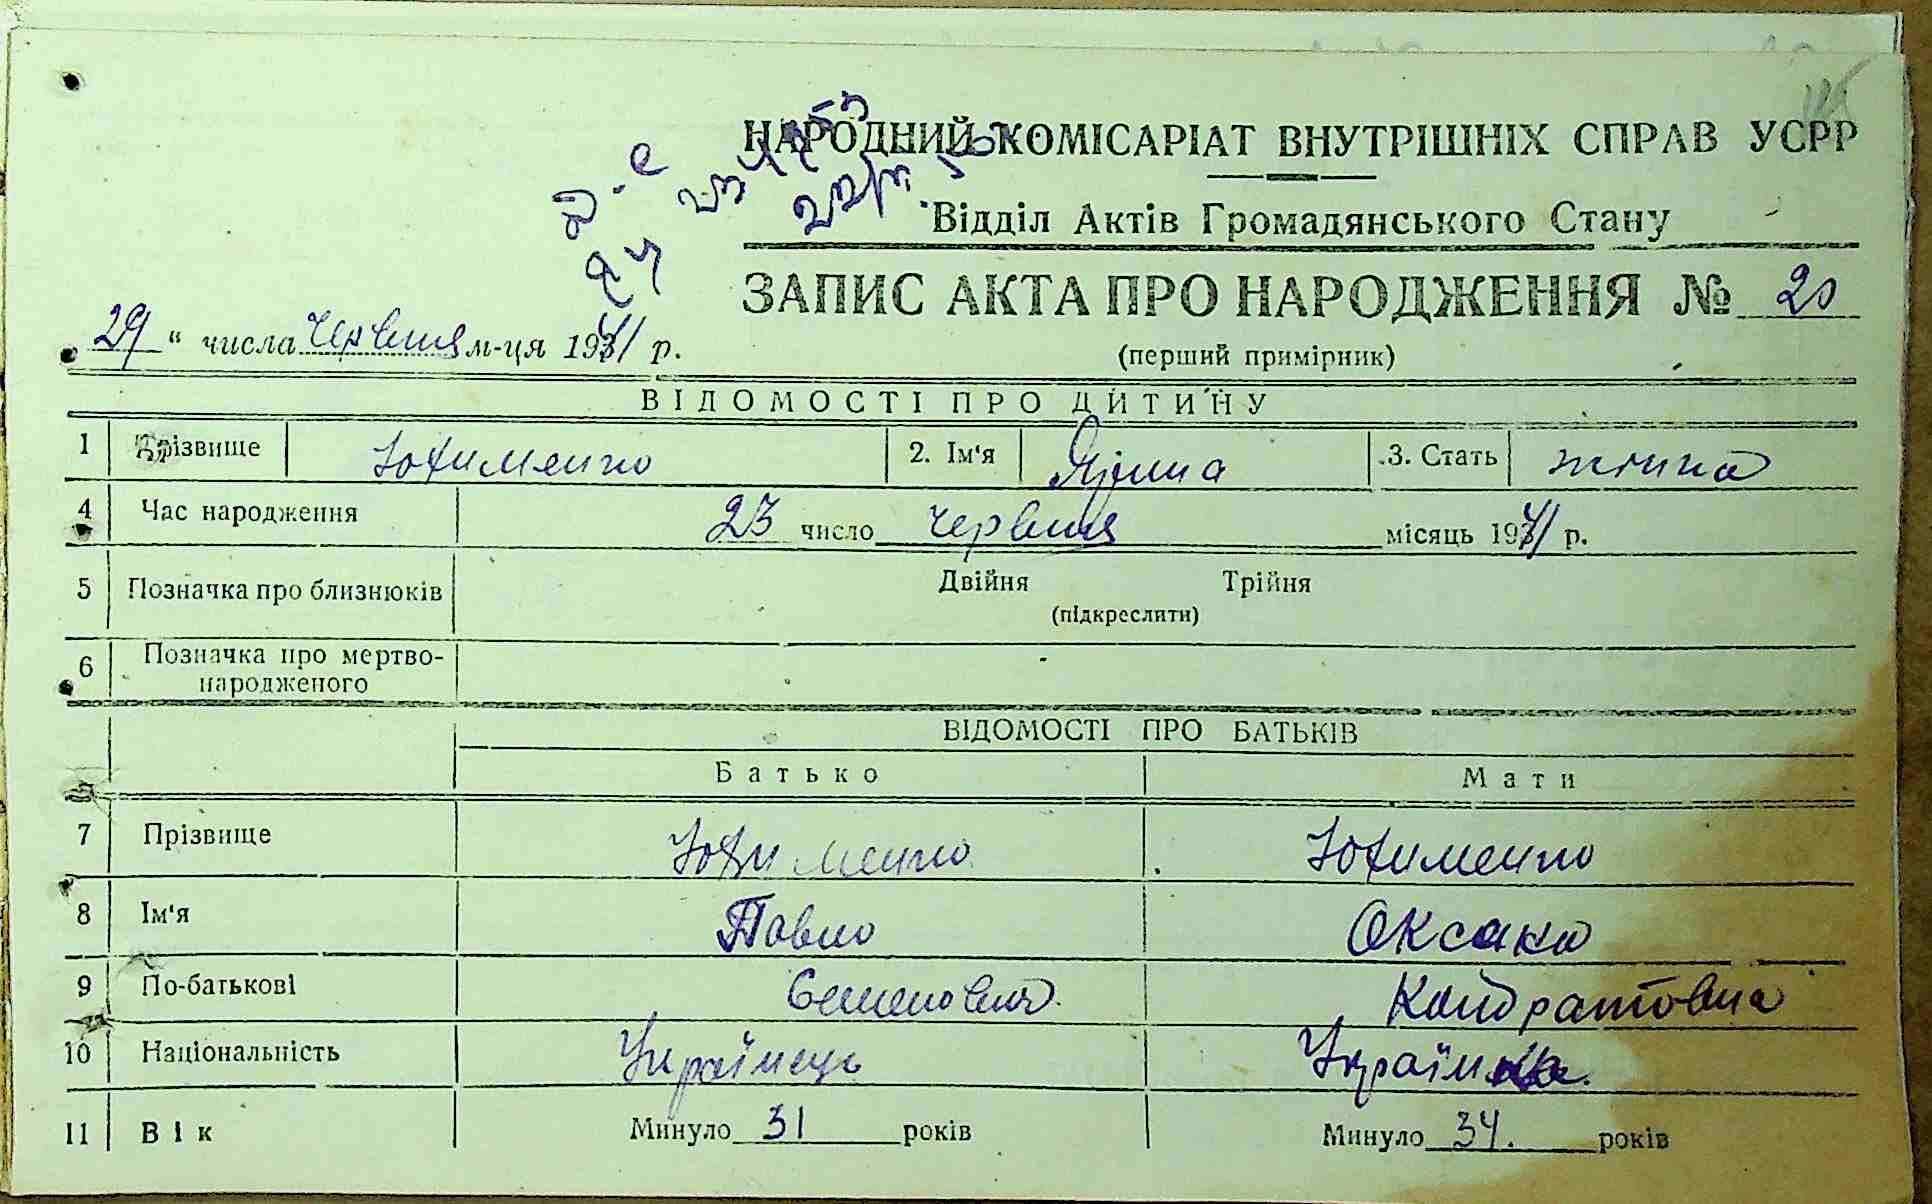 НАРОДНИЙ КОМІСАРІАТ ВНУТРІШНІХ СПРАВ УСРР
Відділ Актів Громадянського Стану
ЗАПИС АКТА ПРО НАРОДЖЕННЯ № 20
29 " числа червня м-ця 1941 р.
(перший примірник)
ВІДОМОСТІ ПРО ДИТИНУ
1 Прізвище Юхименко 2. Ім'я Ярина 3. Стать жіноча
4 Час народження 23 число червня місяць 1941 р.
5 Позначка про близнюків Двійня Трійня
(підкреслити)
6 Позначка про мертво-
народженого
ВІДОМОСТІ ПРО БАТЬКІВ
Батько Мати
7 Прізвище Юхименко Юхименко
8 Ім'я Павло Оксана
9 По-батькові Семенович Кондратовна
10 Національність Українець Українка
11 Вік Минуло 31 років Минуло 34. років